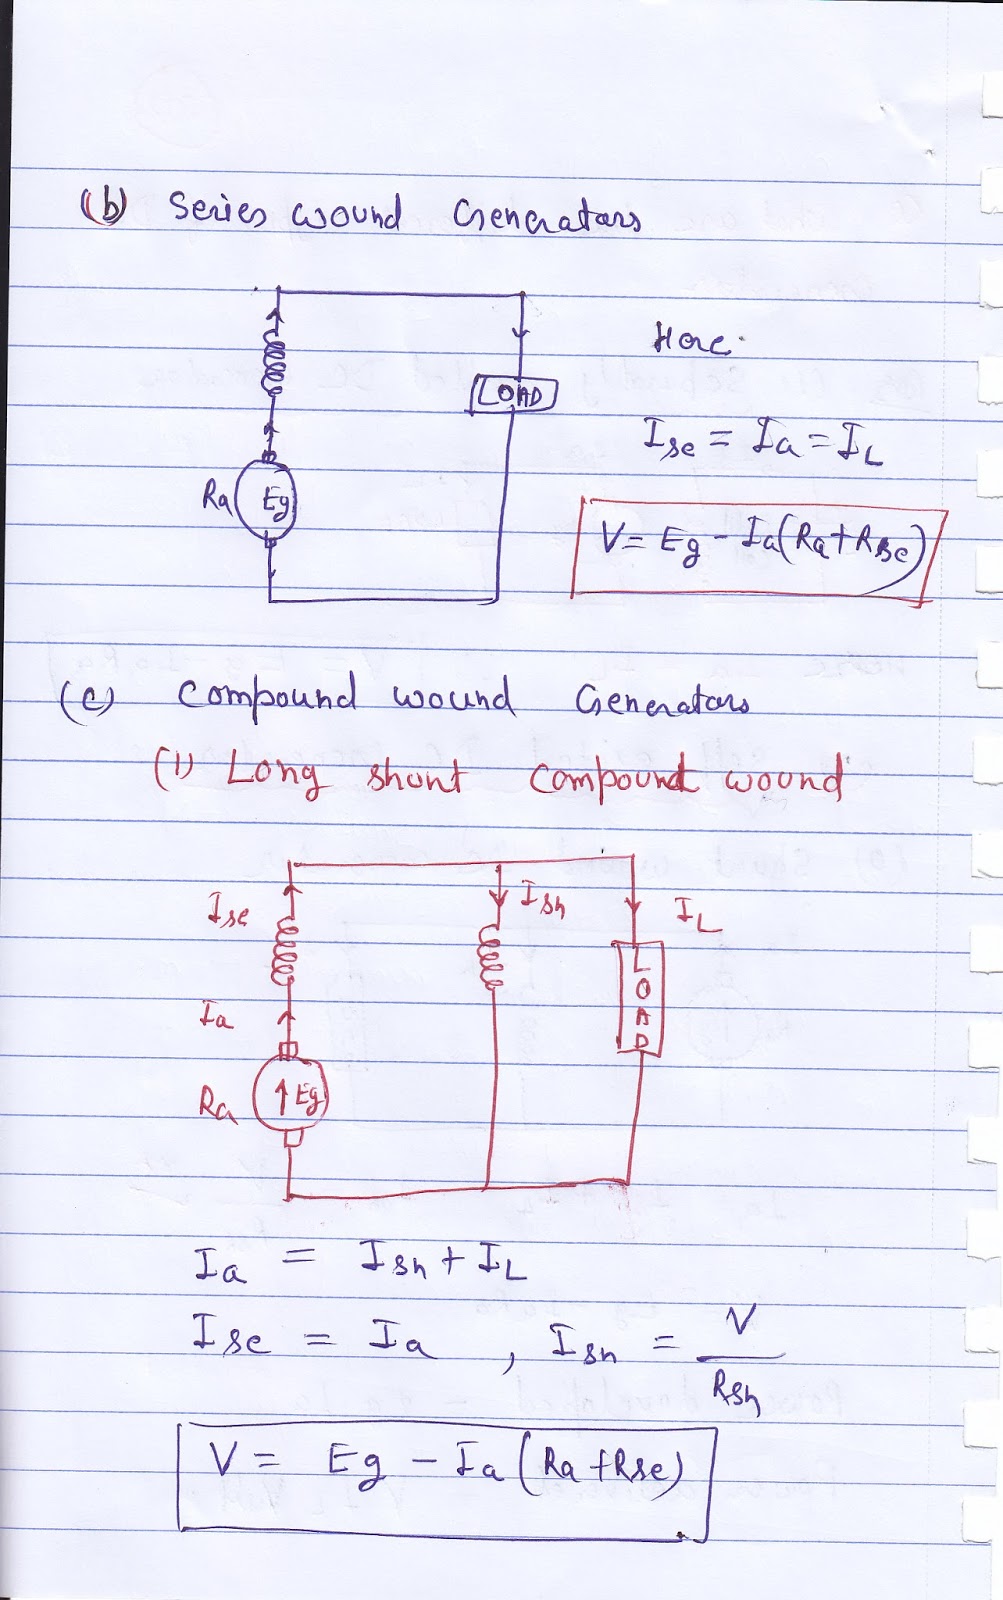 (b) Series wound Generators
Here.
LOAD
Ise = Ia = IL
Ra Eg
V = Eg - Ia(Ra + Rse)
(c) Compound wound Generators
(1) Long shunt compound wound
Ise Ish IL
LOAD
Ia
Ra Eg
Ia = Ish + IL
Ise = Ia , Ish = V
Rsh
V = Eg - Ia (Ra + Rse)